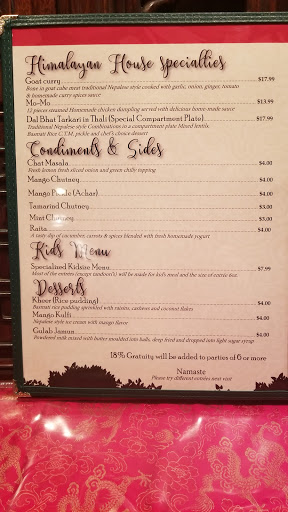 Himalayan House specialties
Goat curry $17.99
Bone in goat cube meat traditional Nepalese style cooked with garlic, onion, ginger, tomato
& homemade curry spices sauce
Mo-Mo $13.99
12 pieces steamed Homemade chicken dumpling served with delicious home-made sauce
Dal Bhat Tarkari in Thali (Special Compartment Plate) $17.99
Traditional Nepalese style Combinations in a compartment plate Mixed lentils,
Basmati Rice C.T.M, pickle and chef's choice dessert
Condiments & Sides
Chat Masala $4.00
Fresh lemon fresh sliced onion and green chilly topping
Mango Chutney $4.00
Mango Pickle (Achar) $4.00
Tamarind Chutney $3.00
Mint Chutney $3.00
Raita $4.00
A tasty dip of cucumber, carrots & spices blended with fresh homemade yogurt
Kids Menu
Specialized Kidsize Menu $7.99
Most of the entrees (except tandoori's) will be made for kid's meal and the size of entrée 8oz
Desserts
Kheer (Rice pudding) $4.00
Basmati rice pudding sprinkled with raisins, cashews and coconut flakes
Mango Kulfi $4.00
Nepalese style ice cream with mango flavor
Gulab Jamun $4.00
Powdered milk mixed with butter moulded into balls, deep fried and dropped into light sugar syrup
18% Gratuity will be added to parties of 6 or more
Namaste
Please try different entrées next visit